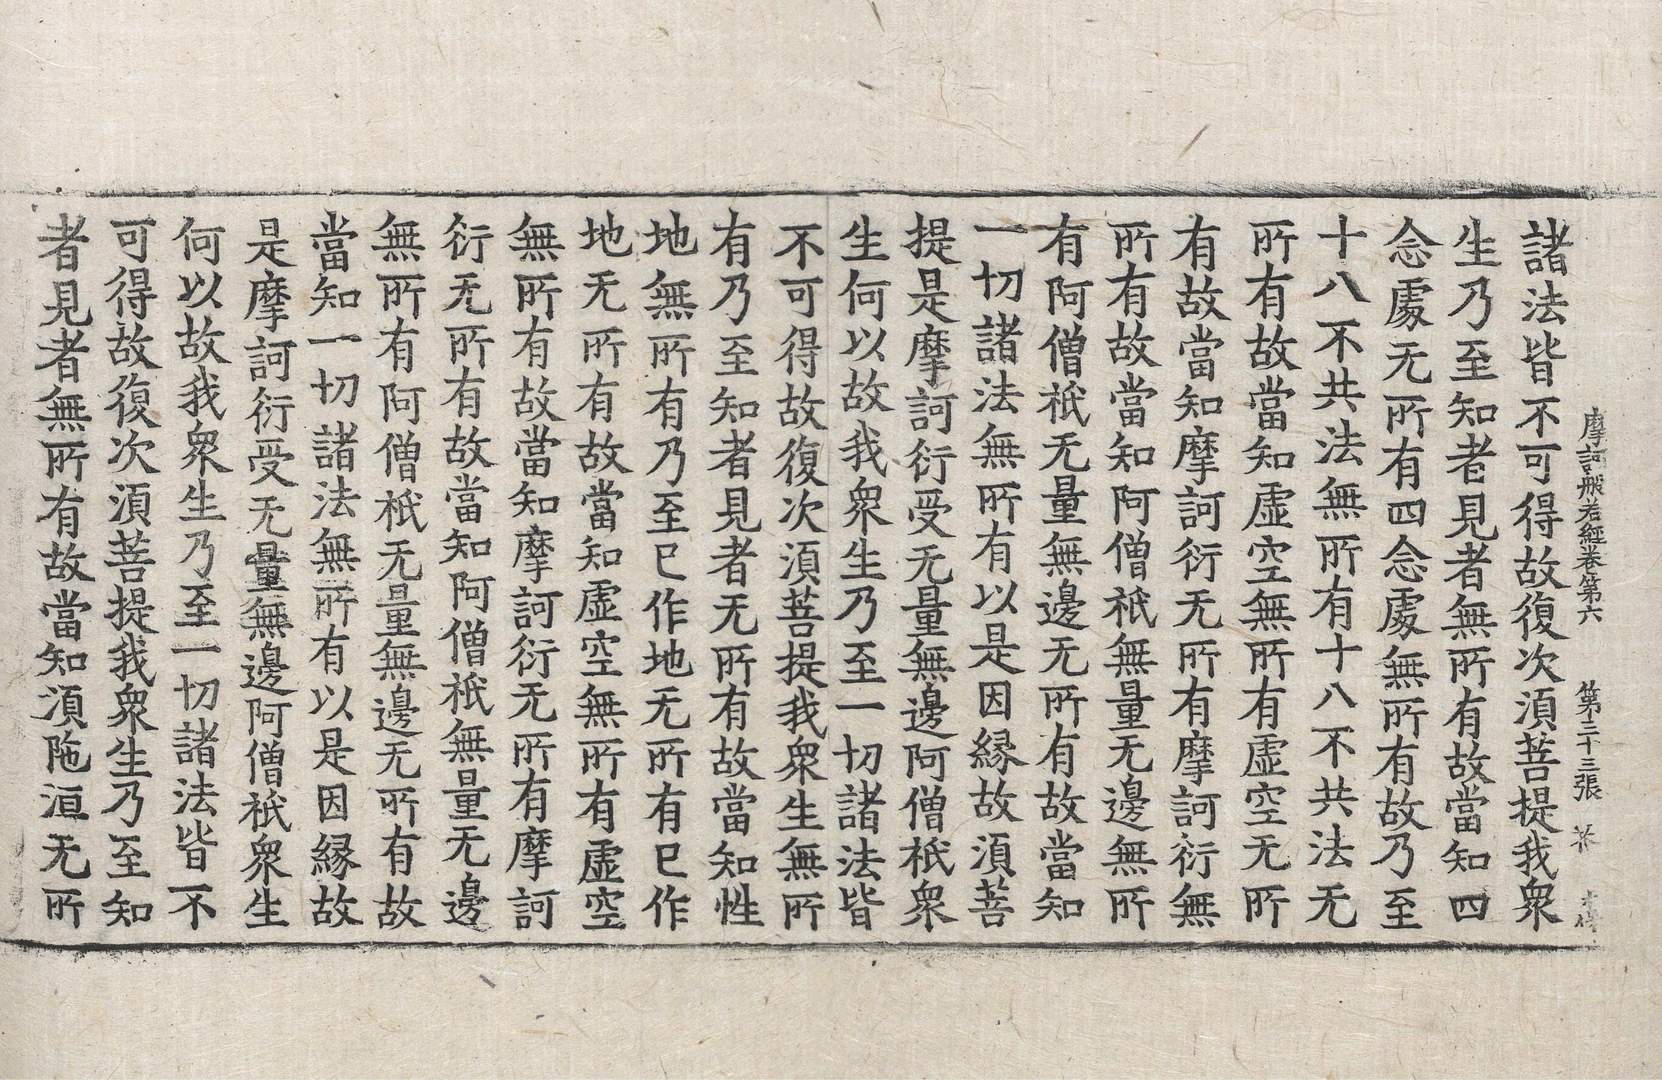 摩訶般若經卷第六 第三十三張 芥
諸法皆不可得故復次湏菩提我衆
生乃至知者見者無所有故當知四
念處无所有四念處無所有故乃至
十八不共法無所有十八不共法无
所有故當知虛空無所有虛空无所
有故當知摩訶衍无所有摩訶衍無
所有故當知阿僧祇無量无邊無所
有阿僧祇无量無邊无所有故當知
一切諸法無所有以是因縁故湏菩
提是摩訶衍受无量無邊阿僧祇衆
生何以故我衆生乃至一切諸法皆
不可得故復次湏菩提我衆生無所
有乃至知者見者无所有故當知性
地無所有乃至已作地无所有已作
地无所有故當知虛空無所有虛空
無所有故當知摩訶衍无所有摩訶
衍无所有故當知阿僧祇無量无邊
無所有阿僧祇无量無邊无所有故
當知一切諸法無所有以是因縁故
是摩訶衍受无量無邊阿僧祇衆生
何以故我衆生乃至一切諸法皆不
可得故復次湏菩提我衆生乃至知
者見者無所有故當知湏陁洹无所